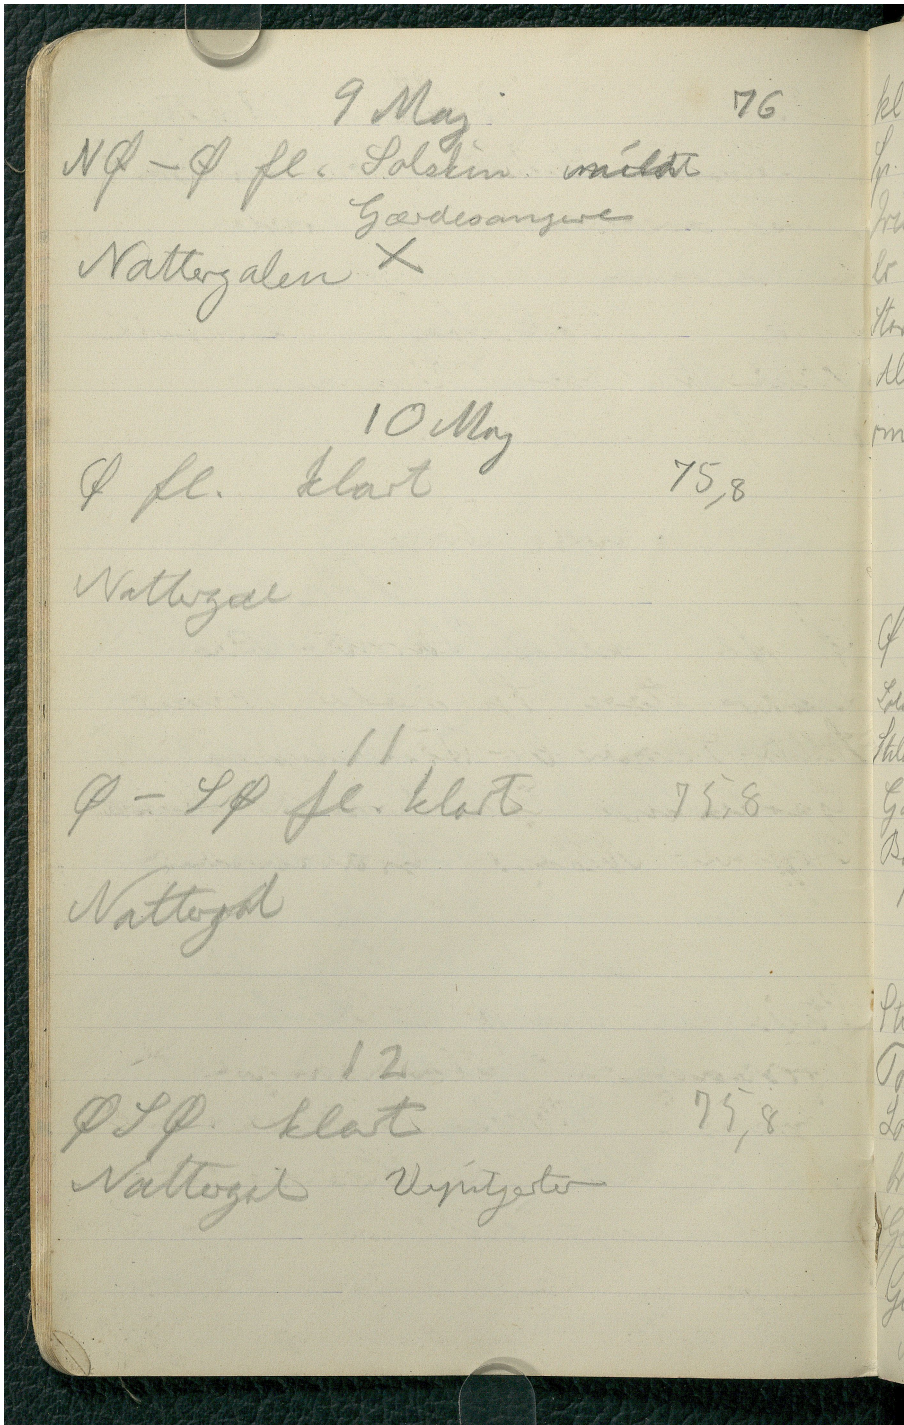 9 Maj 76
NØ - Ø fl. Solskin mildt
Gærdesangere
Nattergalen X
10 Maj
Ø fl. klart 75,8
Nattergal
11
Ø - SØ fl. klart 75,8
Nattergal
12
ØSØ. klart 75,8
Nattergal